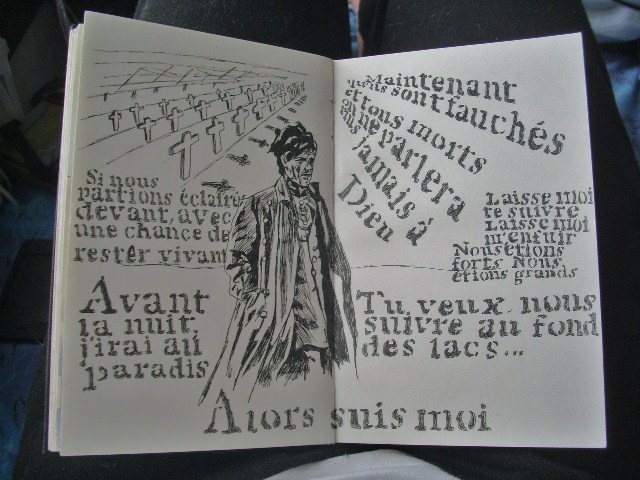 Si nous
partions éclairé
devant, avec
une chance de
rester vivant
Avant
la nuit,
j'irai au
paradis
Maintenant
sont fauchés
et tous morts
on ne parlera
jamais à
Dieu
Laisse moi
te suivre
Laisse moi
m'enfuir
Nous étions
forts Nous
étions grands
Tu veux nous
suivre au fond
des lacs...
Alors suis moi